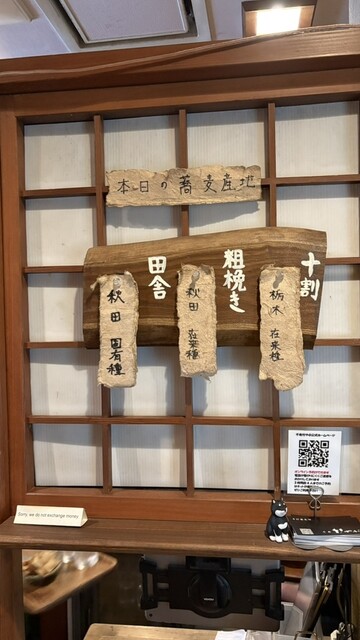 本日の蕎麦産地
十割
栃木 在来種
粗挽き
秋田 在来種
田舎
秋田 固有種
Sorry, we do not exchange money.